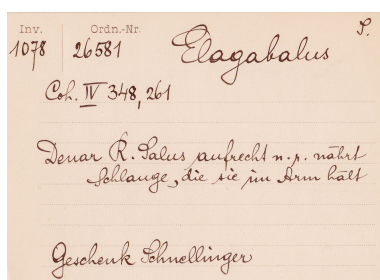 Inv. Ordn.-Nr. S.
1078 26581 Elagabalus
Coh. IV 348, 261
Denar R. Salus aufrecht n. r. nährt
Schlange, die sie im Arm hält
Geschenk Schnellinger